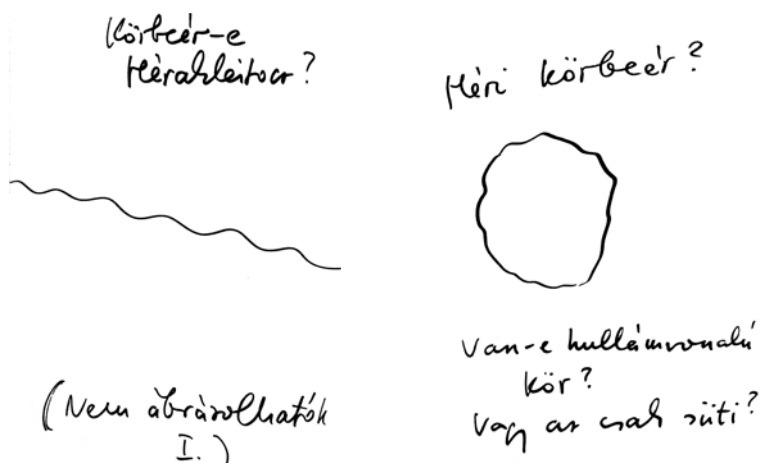 Körbeér-e
Hérakleitosz?
(Nem ábrázolhatók
I.)
Héri körbeér?
Van-e hullámvonalú
kör?
Vagy az csak süti?